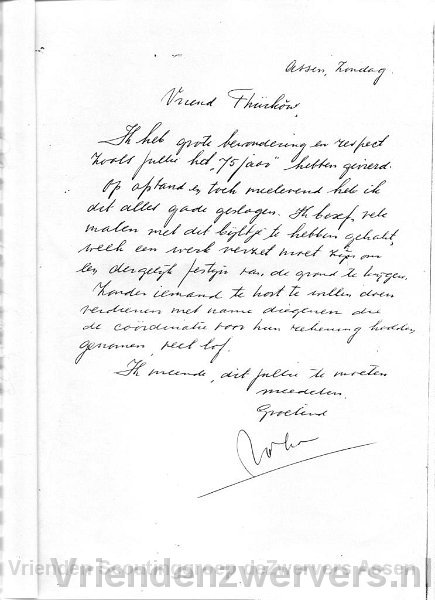 Assen, Zondag.
Vriend Thürkow,
Ik heb grote bewondering en respect
zoals jullie het "75 jaar" hebben gevierd.
Op afstand en toch meelevend heb ik
dit alles gade geslagen. Ik besef, vele
malen met dit bijltje te hebben gehakt,
welk een werk verzet moet zijn om
een dergelijk festijn van de grond te krijgen.
Zonder iemand te kort te willen doen
verdienen met name diegenen die
de coördinatie voor hun rekening hadden
genomen, veel lof.
Ik meende, dit jullie te moeten
meedelen.
Groetend
Vrienden Scoutinggroep deZwervers Assen
Vriendenzwervers.nl